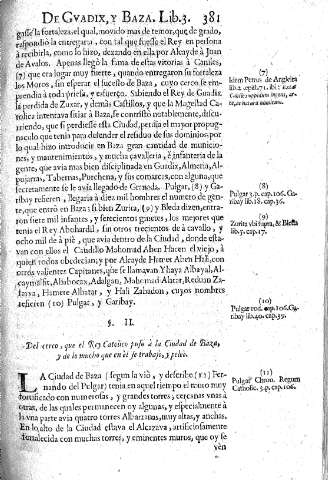 DE GVADIX, Y BAZA. Lib.3. 381
gasse la fortaleza, el qual, movido mas de temor, que de grado,
respondiò la entregaria, con tal que fuesse el Rey en persona
à recibirla, como lo hizo, dexando en ella por Alcayde à Juan
de Avalos. Apenas llegò la fama de estas vitorias à Caniles,
(7) que era lugar muy fuerte, quando entregaron su fortaleza
los Moros, sin esperar el sucesso de Baza, cuyo cerco se em-
prendia à toda priessa, y esfuerço. Sabiendo el Rey de Guadix
la perdida de Zuxar, y demàs Castillos, y que la Magestad Ca-
tolica intentava sitiar à Baza, se contristò notablemente, discu-
rriendo, que si perdiesse esta Ciudad, perdia el mayor propug-
naculo que tenia para defender el residuo de sus dominios por
lo qual hizo introducir en Baza gran cantidad de municio-
nes, y mantenimientos, y mucha cavalleria, è infanteria de la
gente, que avia mas bien disciplinada en Guadix, Almeria, Al-
pujarras, Tabernas, Purchena, y sus comarcas, con alguna, que
secretamente se le avia llegado de Granada. Pulgar, (8) y Ga-
ribay refieren, llegaria à diez mil hombres el numero de gen-
te, que entrò en Baza: si bien Zurita, (9) y Bleda dizen, entra-
ron siete mil infantes, y setecientos ginetes, los mejores que
tenia el Rey Abohardil, sin otros trecientos de à cavallo, y
ocho mil de à piè, que avia dentro de la Ciudad, donde esta-
van con ellos el Caudillo Mahomad Aben Hacen el viejo, à
quien todos obedecian; y por Alcayde Hamete Aben Hali, con
otros valientes Capitanes, que se llamavan Yhaya Albayal, Al-
Jazan, Hamete Albatar, y Hali Zabadon, cuyos nombres
refieren (10) Pulgar, y Garibay.
§. II.
Del cerco, que el Rey Catolico puso à la Ciudad de Baza,
y de lo mucho que en èl se trabajò, y peleò.
LA Ciudad de Baza (segun la viò, y describe (11) Fer-
nando del Pulgar) tenia en aquel tiempo el muro muy
fortificado con numerosas, y grandes torres, cercanas vnas à
otras, de las quales permanecen oy algunas, y especialmente à
la vna parte avia quatro torres Albarranas, muy altas, y anchas.
En lo alto de la Ciudad estava el Alcazava, artificiosamente
fortalecida con muchas torres, y eminentes muros, que oy se
vèn
(7)
Idem Petrus de Angleria
(8)
Pulgar 3.p. cap.106. Ga-
ribay lib.18. cap.36.
(9)
Zurita vbi supra, & Bleda
lib.5. cap.17.
(10)
Pulgar 3.p. cap.106. Ga-
ribay lib.40. cap.39.
(11)
Pulgar Chron. Regum
Catholic. 3.p. cap.106.